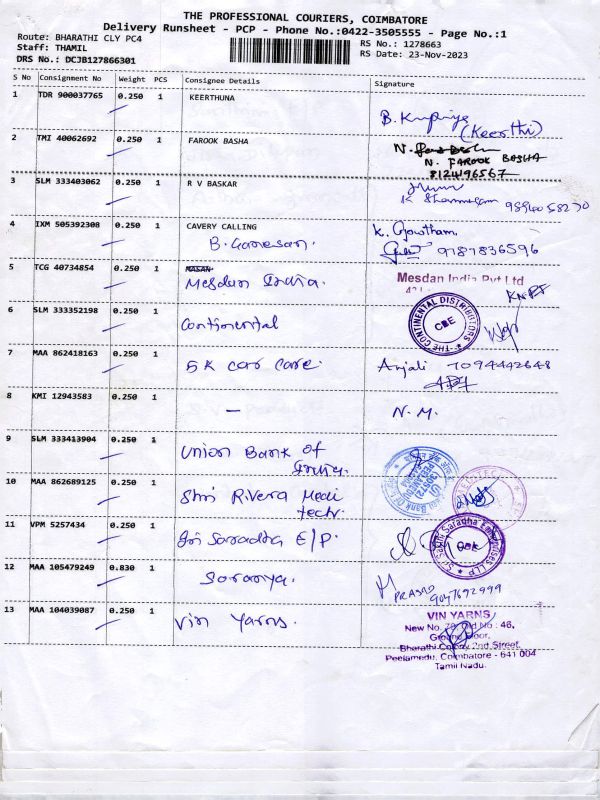 THE PROFESSIONAL COURIERS, COIMBATORE
Delivery Runsheet - PCP - Phone No.:0422-3505555 - Page No.:1
Route: BHARATHI CLY PC4 RS No.: 1278663
Staff: THAMIL RS Date: 23-Nov-2023
DRS No.: DCJB127866301
S No Consignment No Weight PCS Consignee Details Signature
1 TDR 900037765 0.250 1 KEERTHUNA
(Keerthi)
2 TMI 40062692 0.250 1 FAROOK BASHA
N. FAROOK BASHA
3 SLM 333403062 0.250 1 R V BASKAR
4 IXM 505392308 0.250 1 CAVERY CALLING K. Gowtham.
B. Ganesan. 9787836596
5 TCG 40734854 0.250 1 MASAN Mesdan India Pvt Ltd
Mesdan India.
6 SLM 333352198 0.250 1 THE CONTINENTAL DISTRIBUTORS CBE
Continental
7 MAA 862418163 0.250 1 Anjali 7094442648
SK car care.
8 KMI 12943583 0.250 1
- N.M.
9 SLM 333413904 0.250 1
Union Bank of
India.
10 MAA 862689125 0.250 1
Shri Rivera Medi
tech.
11 VPM 5257434 0.250 1 Sri Saradha Enterprises LLP
Sri Saradha E/P.
12 MAA 105479249 0.830 1
Saranya. PRASAD 9047692999
13 MAA 104039087 0.250 1 VIN YARNS
Vin Yarns. New No. 79, Old No : 46,
Ground Floor,
Bharathi Colony 2nd Street,
Peelamedu, Coimbatore - 641 004
Tamil Nadu.